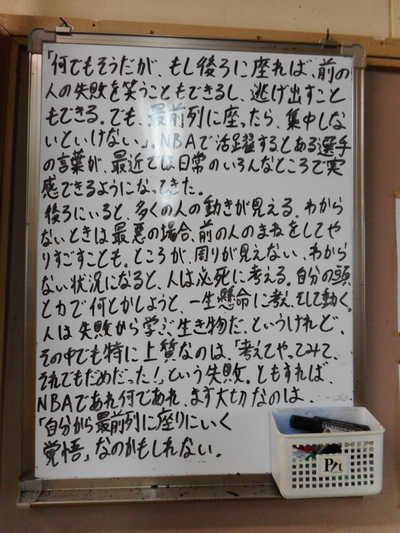 「何でもそうだが、もし後ろに座れば、前の
人の失敗を笑うこともできるし、逃げ出すこと
もできる。でも、最前列に座ったら、集中しな
いといけない」。NBAで活躍するとある選手
の言葉が、最近では日常のいろんなところで実
感できるようになってきた。
後ろにいると、多くの人の動きが見える。わから
ないときは最悪の場合、前の人のまねをしてや
りすごすことも。ところが、周りが見えない、わから
ない状況になると、人は必死に考える。自分の頭
と力で何とかしようと、一生懸命に考え、そして動く。
人は失敗から学ぶ生き物だ、というけれど、
その中でも特に上質なのは、「考えてやってみて、
それでもだめだった!」という失敗。ともすれば、
NBAであれ何であれ、まず大切なのは、
「自分から最前列に座りにいく
覚悟」なのかもしれない。